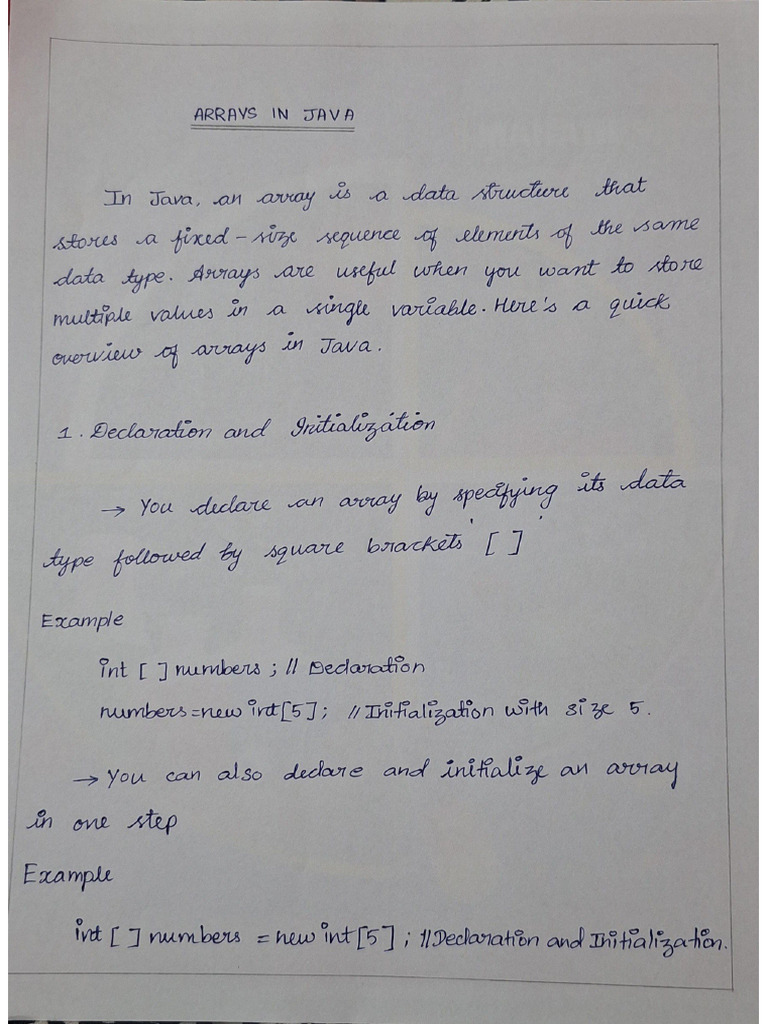 ARRAYS IN JAVA
In Java, an array is a data structure that
stores a fixed-size sequence of elements of the same
data type. Arrays are useful when you want to store
multiple values in a single variable. Here's a quick
overview of arrays in Java.
1. Declaration and Initialization
→ You declare an array by specifying its data
type followed by square brackets '[ ]'
Example
int [ ] numbers ; // Declaration
numbers = new int [5] ; // Initialization with size 5.
→ You can also declare and initialize an array
in one step
Example
int [ ] numbers = new int [5] ; // Declaration and Initialization.